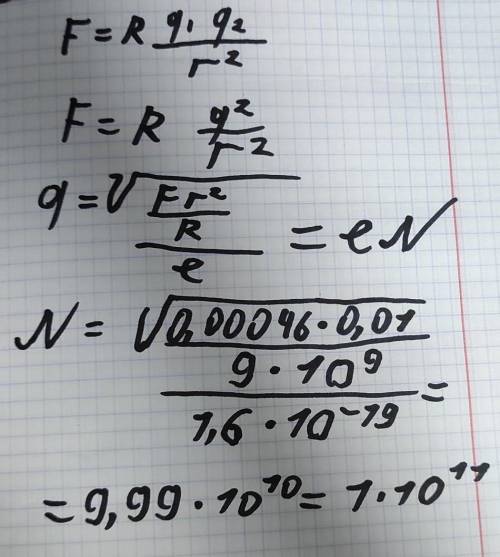 F = R q₁ q₂ / r²
F = R q² / r²
q = √(Fr² / R) / e = eN
N = √(0,00046 · 0,01 / 9 · 10⁹) / 1,6 · 10⁻¹⁹ =
= 9,99 · 10¹⁰ = 1 · 10¹¹